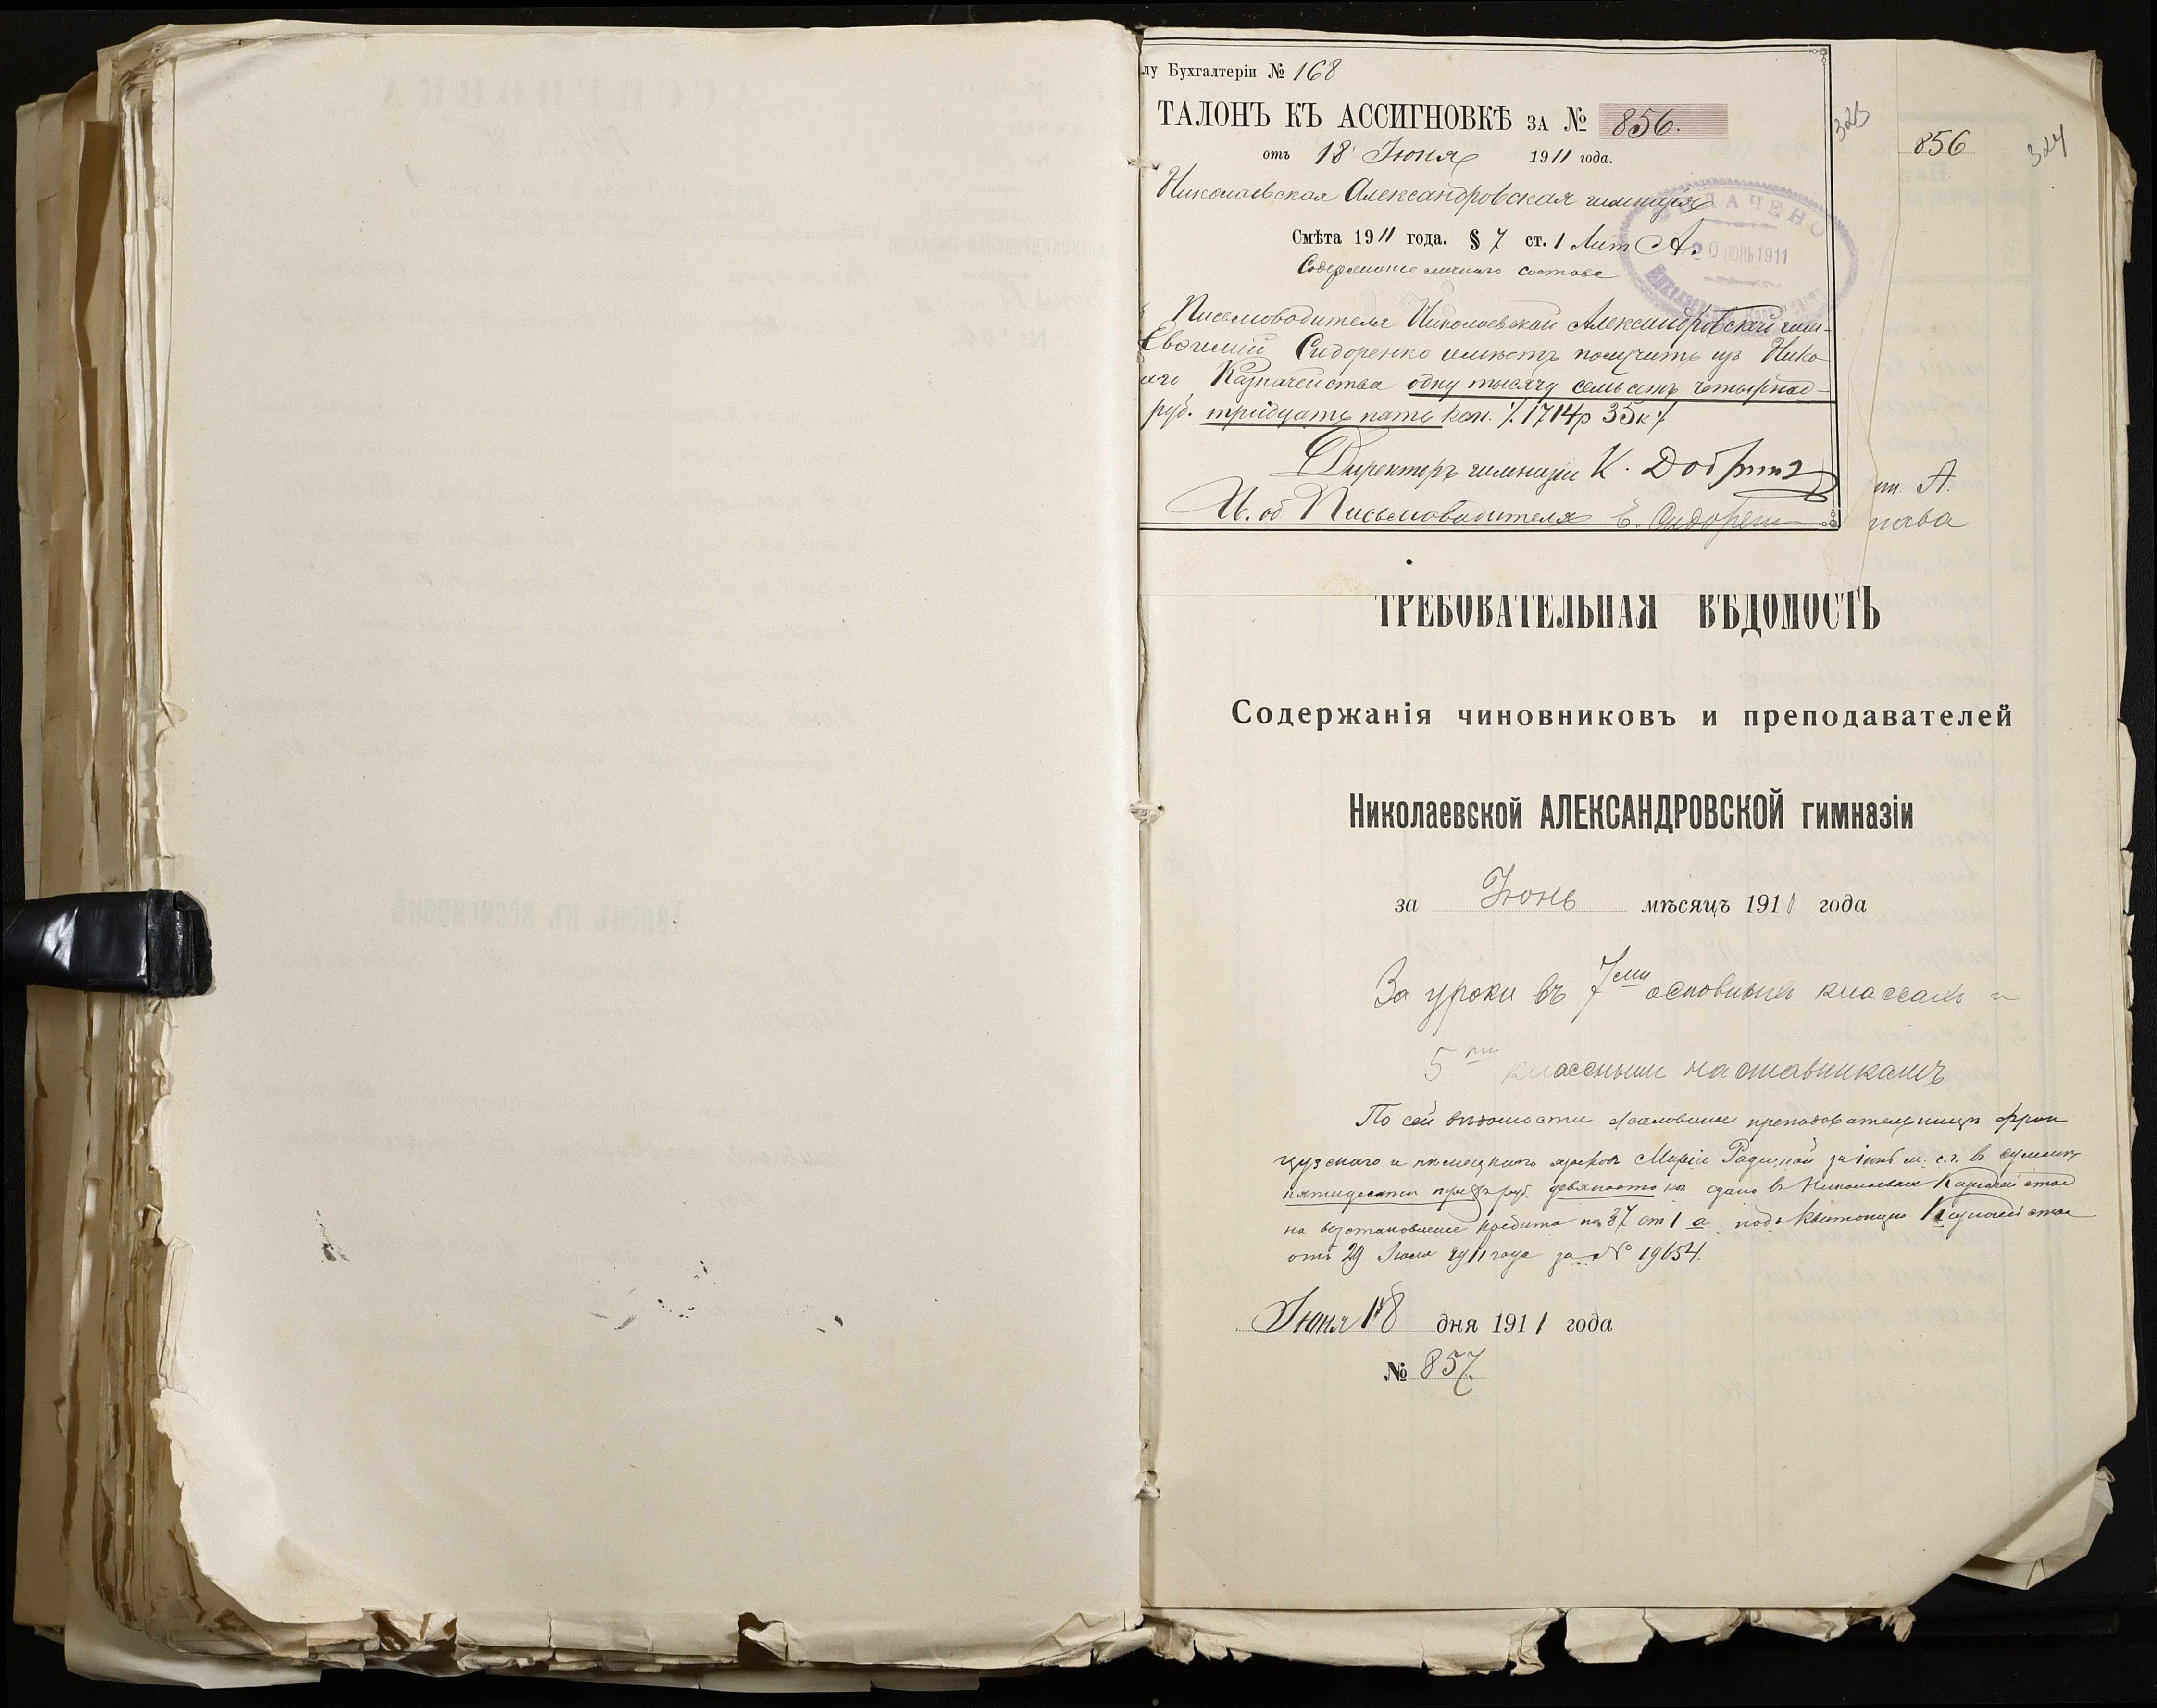 лу Бухгалтеріи № 168
ТАЛОНЪ КЪ АССИГНОВКѢ ЗА № 856.
323
856
324
отъ 18 Июня 1911 года.
Николаевская Александровская гимназія
Смѣта 1911 года. § 7 ст. 1 Лит А.
Содержаніе личнаго состава
ЛАЧЕНО
20 ИЮНЬ 1911
Письмоводителя Николаевской Александровской гим-
Евфимій Сидоренко имѣетъ получить изъ Нико
аго Казначейства одну тысячу семьсотъ четырнад-
руб. тридцать пять коп. ٪ 1714р 35к ٪
Директоръ гимназіи К.
И. об Письмоводителя Е. Сидорен
ит. А.
тава
ТРЕБОВАТЕЛЬНАЯ ВѢДОМОСТЬ
Содержанія чиновниковъ и преподавателей
Николаевской АЛЕКСАНДРОВСКОЙ гимназіи
за Іюнь мѣсяцъ 1911 года
За уроки въ 7ми основныхъ классахъ и
5ти класснымъ наставникамъ
По сей вѣдомости жалованье преподавательницы фран
цузскаго и нѣмецкаго языковъ Маріи за іюнь м. с.г. въ суммѣ
пятидесяти руб. девяносто ко сдано въ Николаевское Казначейство
на возстановленіе кредита по § 7 ст 1 а подъ квитанцію Казначейства
отъ 29 1911 года за № 19654.
Іюня 18 дня 1911 года
№ 857.